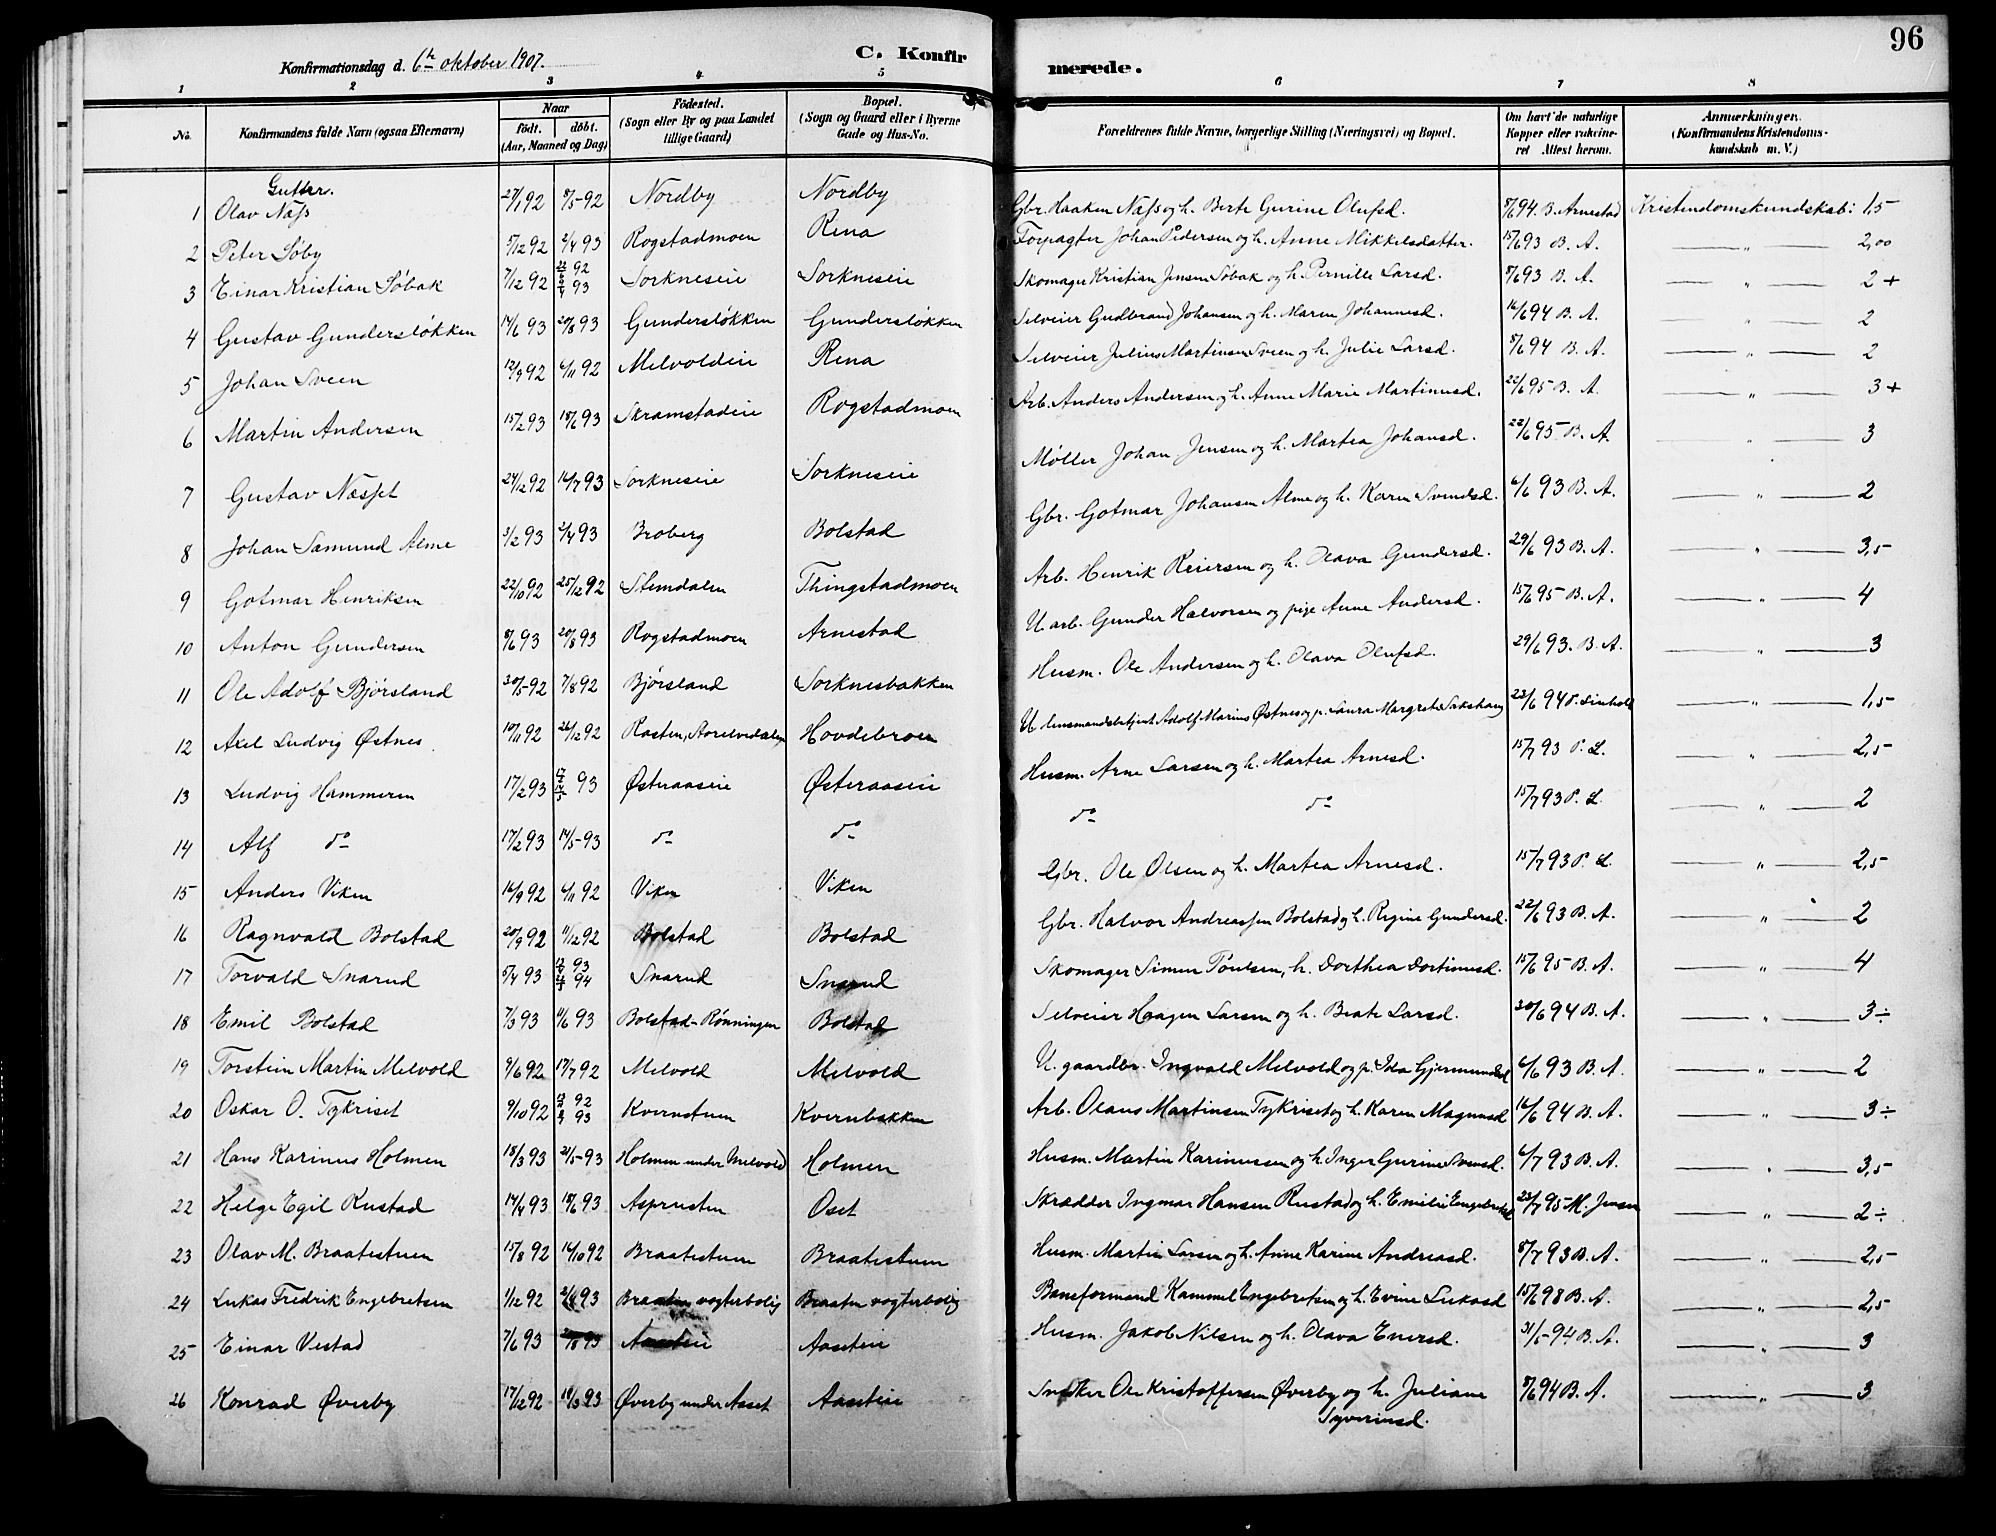 96
Konfirmationsdag d. 6te oktober 1907.
C. Konfirmerede.
1 2 3 4 5 6 7 8
No. Konfirmandens fulde Navn (ogsaa Efternavn) Naar födt. döbt. (Aar, Maaned og Dag) Födested. (Sogn eller By og paa Landet tillige Gaard) Bopæl. (Sogn og Gaard eller i Byerne Gade og Hus-No. Forældrenes fulde Navne, borgerlige Stilling (Næringsvei) og Bopæl. Om havt de naturlige Kopper eller vakcineret Attest herom. Anmærkninger. (Konfirmandens Kristendomskundskab m. V.)
Gutter.
1 Olav Næss 27/1 92 8/5-92 Nordby Nordby Gbr. Haaken Næss og h. Berte Gurine Olufsd. 8/6 94. B. Arnestad Kristendomskundskab: 1,5
2 Peter Søby 5/12 92 2/4 93 Rogstadmoen Rena Forpagter Johan Pedersen og h. Anne Mikkelsdatter. 15/6 93 B. A. — " — 2,00
3 Einar Kristian Søbak 7/12 92 Sorkneseie Sorkneseie Skomager Kristian Jensen Søbak og h. Pernille Larsd. 8/6 93 B. A. — " — 2 +
4 Gustav Gundersløkken 14/6 93 20/8 93 Gundersløkken Gundersløkken Selveier Gudbrand Johansen og h. Maren Johannesd. 16/6 94 B. A. — " — 2
5 Johan Sveen 12/9 92 6/11 92 Melvoldeie Rena Selveier Julius Martinsen Sveen og h. Julie Larsd. 8/6 94 B. A. — " — 2
6 Martin Andersen 15/2 93 18/6 93 Skramstadeie Rogstadmoen Arb. Anders Andersen og h. Anne Marie Martinusd. 22/6 95 B. A. — " — 3 +
7 Gustav Næsset 24/12 92 16/7 93 Sorkneseie Sorkneseie Møller Johan Jensen og h. Martea Johansd. 22/6 95 B. A. — " — 3
8 Johan Samund Alme 3/2 93 2/4 93 Broberg Bolstad Gbr. Gotmar Johansen Alme og h. Karen Svendsd. 6/6 93 B. A. — " — 2
9 Gotmar Henriksen 22/10 92 25/12 92 Stemdalen Thingstadmoen Arb. Henrik Reiersen og h. Olava Gundersd. 29/6 93 B. A. — " — 3,5
10 Anton Gundersen 8/6 93 20/8 93 Rogstadmoen Arnestad U. arb. Gunder Halvorsen og pige Anne Andersd. 15/6 95 B. A. — " — 4
11 Ole Adolf Bjørsland 30/5-92 7/8 92 Bjørsland Sorknesbakken Husm. Ole Andersen og h. Olava Olufsd. 29/6 93. B. A. — " — 3
12 Axel Ludvig Østnes 10/11 92 26/12 92 Rasten, Hovdebroen U. lensmandsbetjent Adolf Marius Østnes og p. Laura Margrete 23/6 94 — " — 1,5
13 Ludvig Hammeren 17/2 93 Østeraaseie Østeraaseie Husm. Arne Larsen og h. Martea Arnesd. 15/7 93 P. L. — " — 2,5
14 Alf do 17/2 93 14/5-93 do do do do 15/7 93 P. L. — " — 2
15 Anders Viken 16/9 92 6/11 92 Viken Viken Gbr. Ole Olsen og h. Martea Arnesd. 15/7 93 P. L. — " — 2,5
16 Ragnvald Bolstad 20/9 92 11/12 92 Bolstad Bolstad Gbr. Halvor Andreassen Bolstad og h. Regine Gundersd. 22/6 93 B. A. — " — 2
17 Torvald Snarud 5/4 93 Snarud Snarud Skomager Simen Poulsen, h. Dorthea 15/6 95 B. A. — " — 4
18 Emil Bolstad 7/3 93 11/6 93 Bolstad-Rønningen Bolstad Selveier Haagen Larsen og h. Beate Larsd. 30/6 94 B. A. — " — 3 ÷
19 Torstein Martin Melvold 9/6 92 17/7 92 Melvold Melvold U. gaardbr. Ingvald Melvold og p. Ida Gjermundsd 6/6 93 B. A. — " — 2
20 Oskar O. Tykriset 9/10 92 Kvernstuen Kvernbakken Arb. Olaus Martinsen Tykriset og h. Karen Magnusd 16/6 94 B. A. — " — 3 ÷
21 Hans Karinus Holmen 18/3 93 21/5-93 Holmen under Melvold Holmen Husm. Martin Karinussen og h. Inger Gurine Svensd. 6/7 93 B. A. — " — 3,5
22 Helge Egil Rustad 14/4 93 18/6 93 Asprusten Oset Skrædder Ingmar Hansen Rustad og h. Emilie Engebretsd 23/7 95 M. Jensen — " — 2 ÷
23 Olav M. Braatestuen 15/8 92 16/10 92 Braatestuen Braatestuen Husm. Martin Larsen og h. Anne Karine Andreasd. 8/7 93 B. A. — " — 2,5
24 Lukas Fredrik Engebretsen 1/12 92 2/4 93 Braaten vogterbolig Braaten vogterbolig Baneformand Kammel Engebretsen og h. Evine Lukasd 15/6 98 B. A. — " — 2,5
25 Einar Vestad 7/6 93 Aaseteie Aaseteie Husm. Jakob Nilsen og h. Olava Enersd. 31/5-94 B. A. — " — 3
26 Konrad Øverby 17/12 92 93 Øverby under Aaset Aaseteie Snedker Ole Kristoffersen Øverby og h. Juliane Syverinsd. 8/6 94 B. A. — " — 3